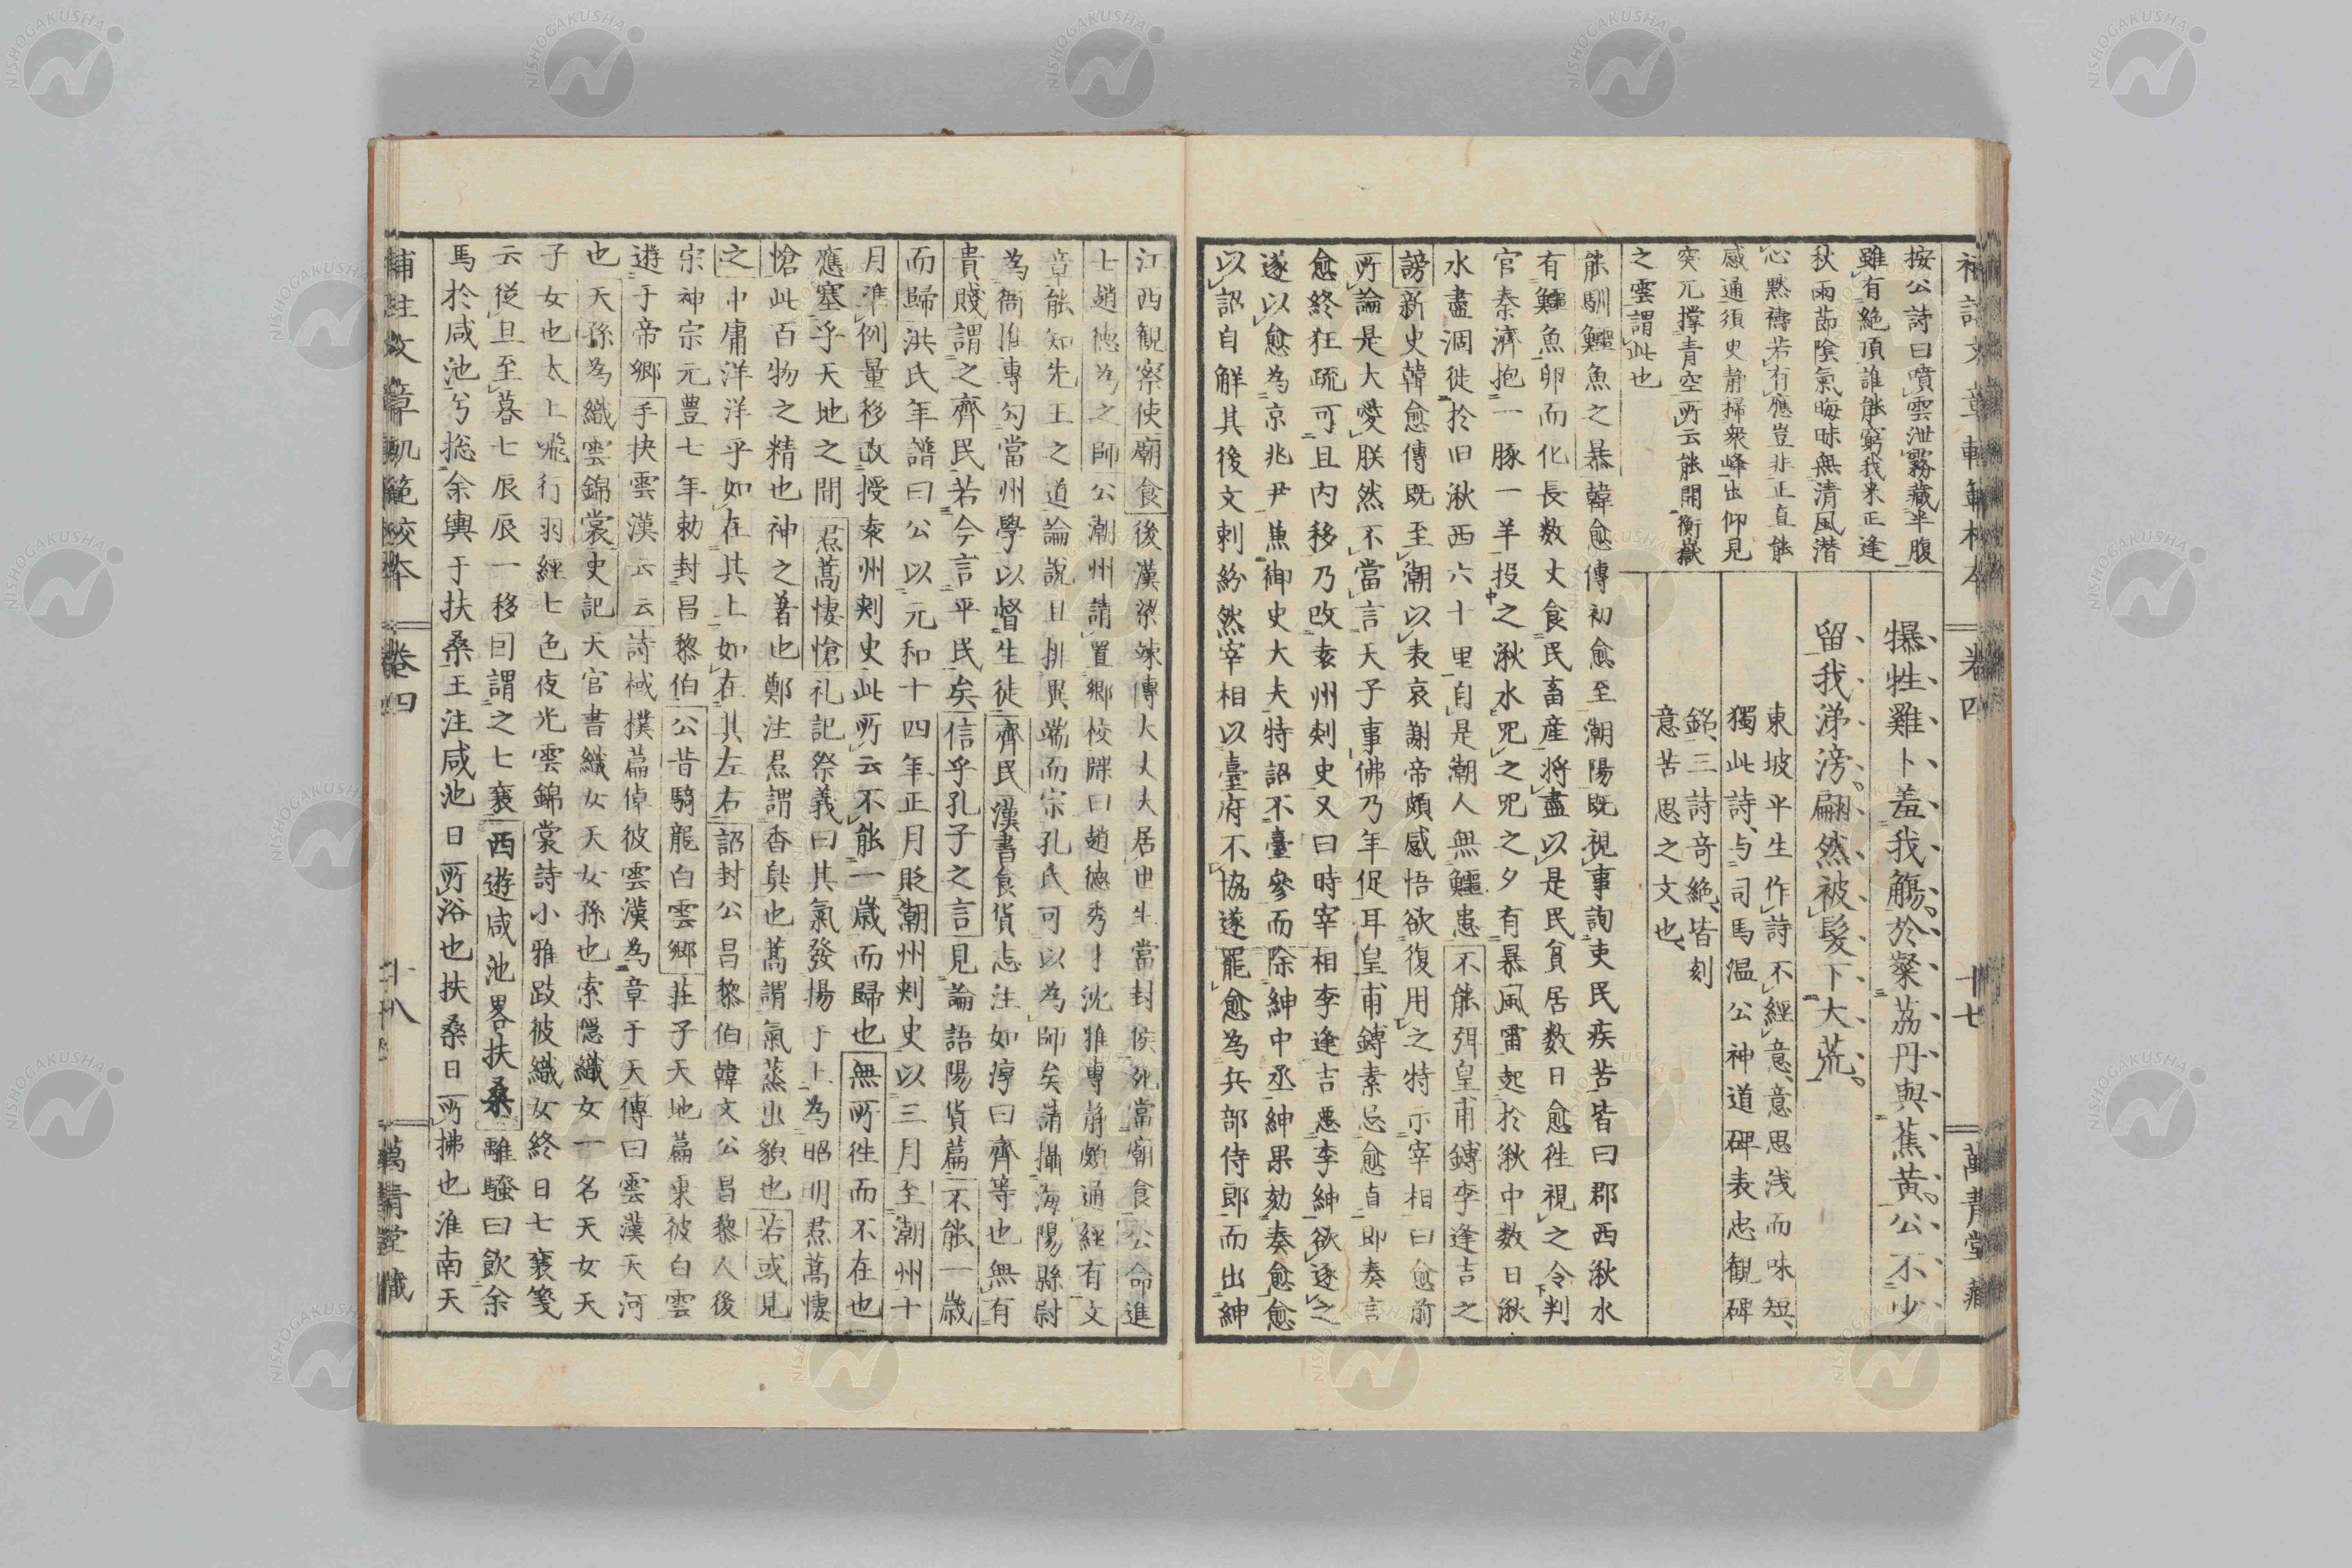 按公詩曰噴雲泄霧藏半腹
雖有絶頂誰能窮我来正逢
秋雨莭陰氣晦昧無清風潜
心黙禱若有應豈非正直能
感通須㬰靜掃衆峰出仰見
突兀撑青空所云能開衡嶽
之雲謂此也
犦牲雞卜羞我觴於粲荔丹與蕉黄公不少
留我涕滂翩然被髮下大荒
東坡平生作詩不經意意思浅而味短
獨此詩与司馬温公神道碑表忠観碑
銘三詩竒絶皆刻
意苦思之文也
能馴鱷魚之暴韓愈傳初愈至潮陽既視事詢吏民疾苦皆曰郡西湫水
有鱷魚卵而化長数丈食民畜産将盡以是民貧居数日愈徃視之令判
官秦濟抱一豚一羊投之湫水咒之咒之夕有暴風雷起於湫中数日湫
水盡涸徙於旧湫西六十里自是潮人無鱷患不能弭皇甫鏄李逢吉之
謗新史韓愈傳既至潮以表哀謝帝頗感悟欲復用之特示宰相曰愈前
所論是大愛朕然不當言天子事佛乃年促耳皇甫鏄素忌愈直即奏言
愈終狂疏可且内移乃改袁州刺史又曰時宰相李逢吉悪李紳欲逐之
遂以愈為京兆尹兼御史大夫特詔不臺參而除紳中丞紳果劾奏愈愈
以詔自解其後文刺紛然宰相以臺府不協遂罷愈為兵部侍郎而出紳
江西観察使廟食後漢梁竦傳大丈夫居世生當封侯死當廟食公命進
士趙徳為之師公潮州請置郷校牒曰趙徳秀才沈雅專静頗通經有文
章能知先王之道論說且排異端而宗孔氏可以為師矣請攝海陽縣尉
為衙推專勾當州學以督生徒齊民漢書食貨志注如淳曰齊等也無有
貴賤謂之齊民若今言平民矣信乎孔子之言見論語陽貨篇不能一歳
而歸洪氏年譜曰公以元和十四年正月貶潮州刺史以三月至潮州十
月準例量移改授袁州刺史此所云不能一歳而歸也無所徃而不在也
應塞乎天地之間焄蒿悽愴礼記祭義曰其氣發揚于上為昭明焄蒿悽
愴此百物之精也神之著也鄭注焄謂香臭也蒿謂氣蒸出貌也若或見
之中庸洋洋乎如在其上如在其左右詔封公昌黎伯韓文公昌黎人後
宗神宗元豊七年勅封昌黎伯公昔騎龍白雲郷荘子天地篇乗彼白雲
遊于帝郷手抉雲漢云云詩棫樸篇倬彼雲漢為章于天傳曰雲漢天河
也天孫為織雲錦裳史記天官書織女天女孫也索隠織女一名天女天
子女也太上飛行羽經七色夜光雲錦裳詩小雅跂彼織女終日七襄箋
云従旦至暮七辰辰一移曰謂之七襄西遊咸池畧扶桑離騷曰飲余
馬於咸池兮捴余轡于扶桑王注咸池日所浴也扶桑日所拂也淮南天
補註文章軌範校本　卷四　十八　萬青堂蔵